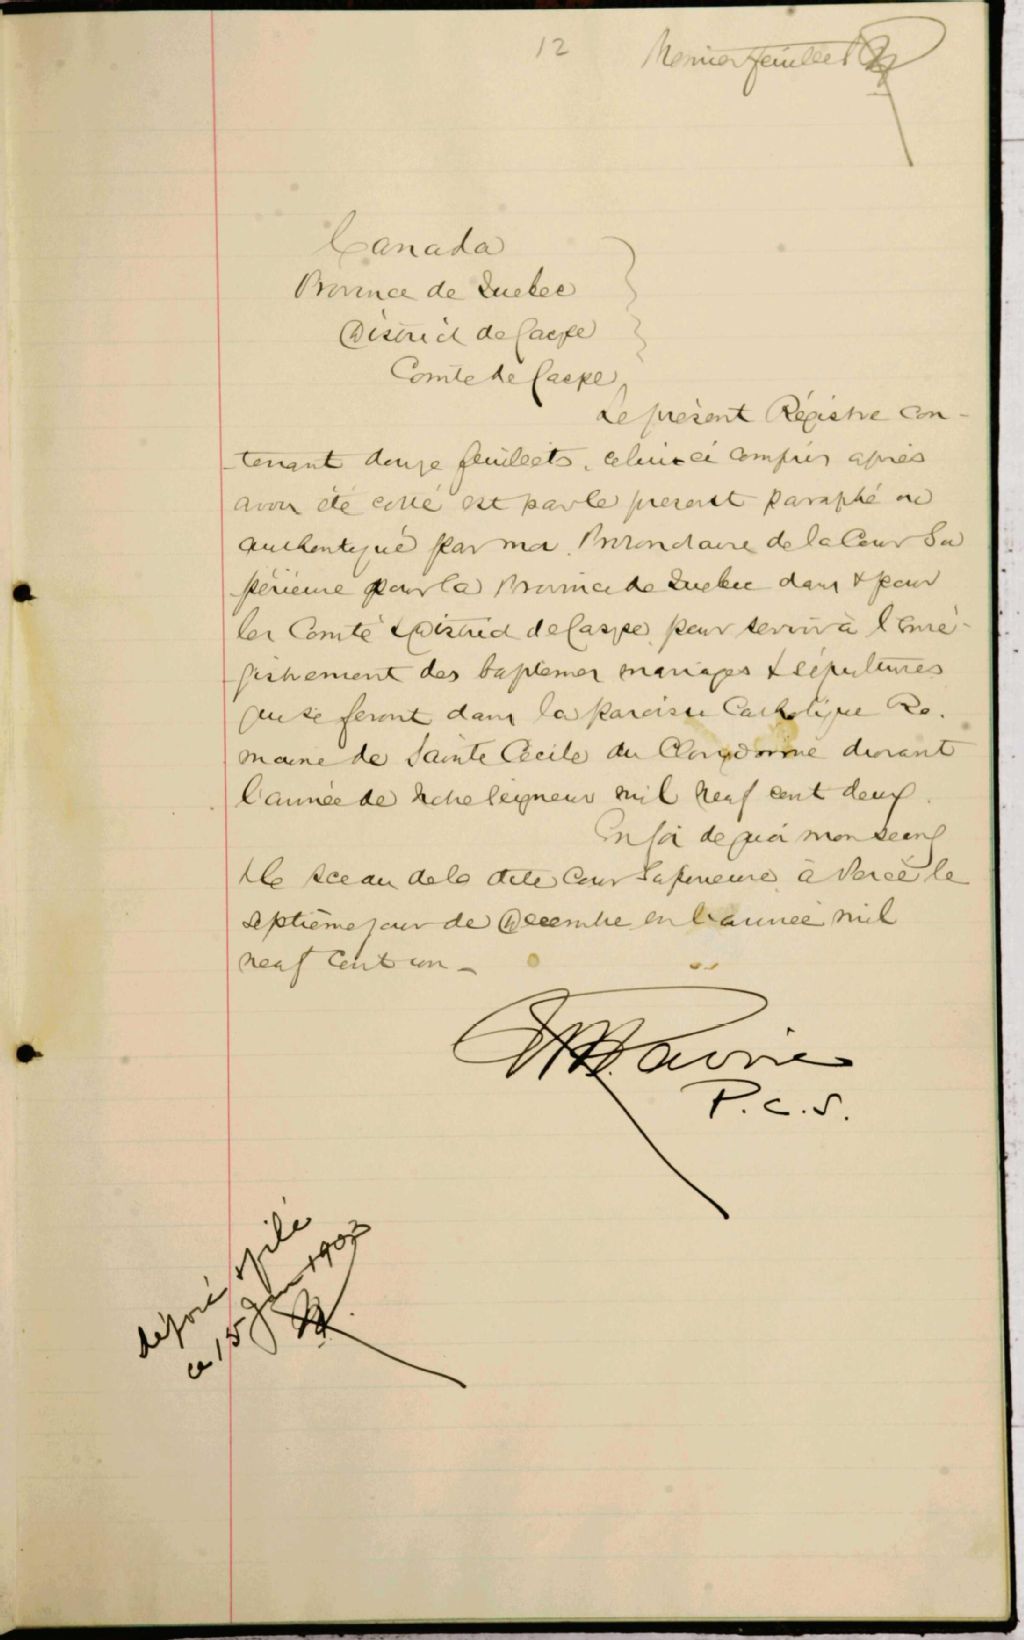 12
Premier feuillet
Canada
Province de Quebec
District de Gaspe
Comte de Gaspe
Le présent Régistre con-
tenant douze feuillets, celui-ci compris après
avoir été cotté est par le present paraphé
authentiqué par moi Protonotaire de la Cour Su
périeure pour la Province de Quebec dans & pour
les Comté & District de Gaspe, pour servir à l'enre-
gistrement des baptemes mariages & sépultures
qui se feront dans la paroisse Catholique Ro-
maine de Sainte Cécile du Cloridorme durant
l'année de Notre Seigneur mil neuf cent deux.
En foi de quoi mon seing
& le sceau de la dite Cour Superieure à Percé le
septième jour de Decembre en l'année mil
neuf cent un -
P.C.S.
déposé & filé
ce 15 Jan 1903